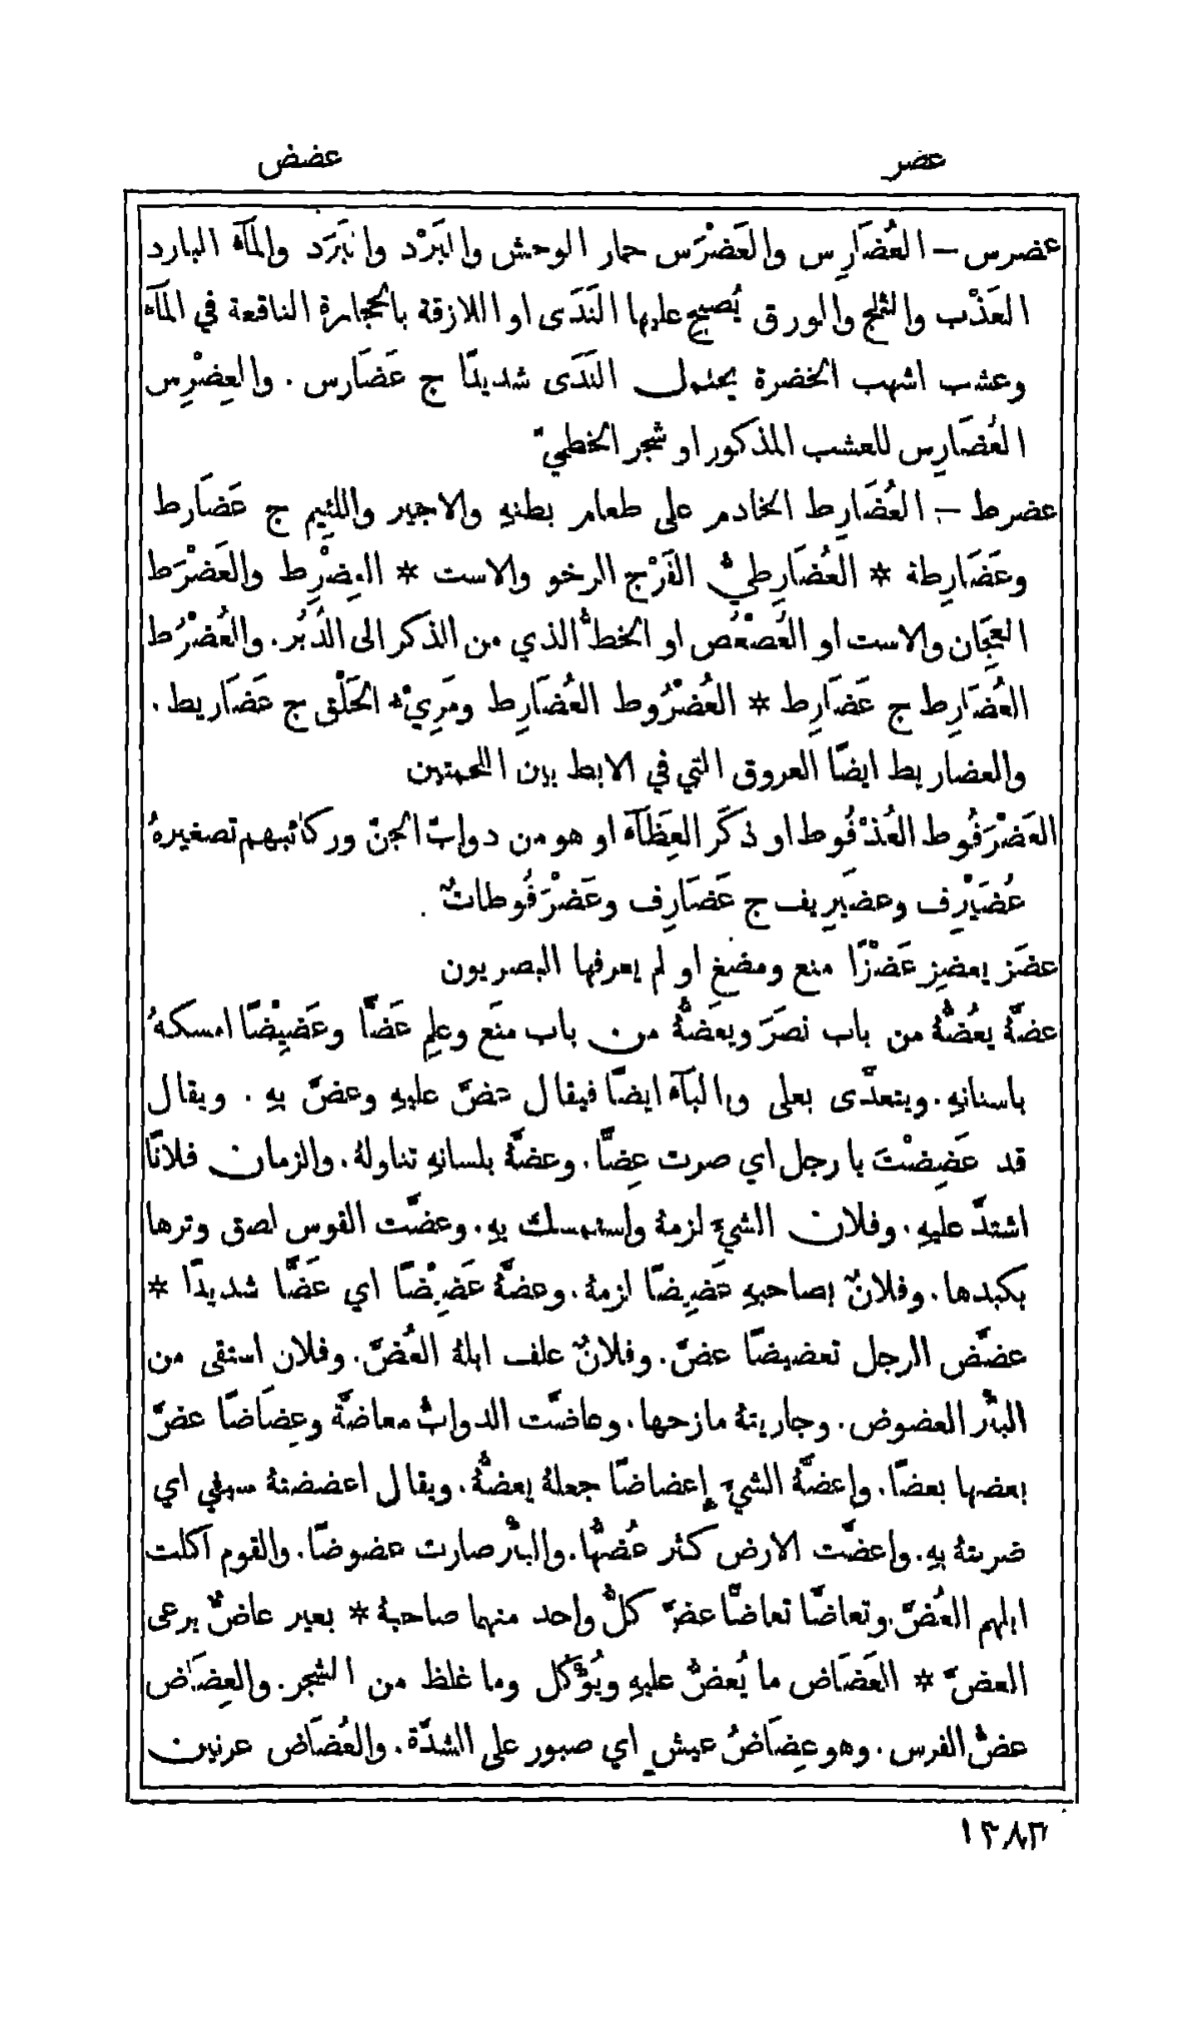 عضر
عضض
عضرس – العُضَارِس والعَضْرَس حمار الوحش والبَرْد والبَرَد والمآء البارد
العَذْب والثلج والورق يُصبح عليها النَدَى او اللازقة بالحجارة الناقعة في المآء
وعشب اشهب الخضرة يحتمل النَدَى شديدًا ج عَضَارس . والعِضْرِس
العُضَارِس للعشب المذكور او شجر الخطميّ
عضرط – العُضَارِط الخادم على طعام بطنهِ والاجير واللئيم ج عَضَارط
وعَضَارِطة * العُضَارِطيُّ الفَرْج الرخو والاست * العِضْرِط والعَضْرَط
العِجَان والاست او العُصْعُص او الخطُّ الذي من الذكر الى الدُبُر. والعُضْرُط
العُضَارِط ج عَضَارِط * العُضْرُوط العُضَارِط ومَرِيْء الحَلْق ج عَضَاريط .
والعضاريط ايضًا العروق التي في الابط بين اللحمتين
العَضْرَفُوط العُذْفُوط او ذكَر العِظَآء او هو من دوابّ الجنّ وركائبهم تصغيرهُ
عُضَيْرِف وعضَيرِيف ج عَضَارِف وعَضْرَفُوطاتٌ .
عضَز يعضِز عَضْزًا منع ومضغ او لم يعرفها البصريون
عضَّهُ يعُضُّهُ من باب نصَرَ ويعَضُّهُ من باب منَع وعلِم عَضًّا وعَضِيْضًا امسكهُ
باسنانهِ . ويتعدَّى بعلى وبالبآء ايضًا فيقال عضَّ عليهِ وعضَّ بهِ . ويقال
قد عَضِضْتَ يا رجل اي صرت عِضًّا . وعضَّهُ بلسانهِ تناولهُ . والزمان فلانًا
اشتدَّ عليهِ . وفلان الشيءَ لزمهُ واستمسك بهِ . وعضَّت القوس لصق وترها
بكبدها . وفلانٌ بصاحبهِ عَضِيضًا لزمهُ . وعضَّهُ عَضِيْضًا اي عَضًّا شديدًا *
عضَّض الرجل تعضيضًا عضَّ . وفلانٌ علف ابلهُ العُضَّ . وفلان استقى من
البئر العضوض . وجاريتهُ مازحها . وعاضَّت الدوابُّ معاضَّةً وعِضَاضًا عضَّ
بعضها بعضًا . واعضَّهُ الشيءَ إعضاضًا جعلهُ يعضُّهُ . ويقال اعضضتهُ سيفي اي
ضربتهُ بهِ . واعضَّت الارض كثر عُضُّها . والبئر صارت عضوضًا . والقوم اكلت
ابلهم العُضَّ . وتعاضَّا تعاضًّا عضَّ كلُّ واحد منهما صاحبهُ * بعير عاضٌّ يرعى
العضَّ * العَضَاض ما يُعضُّ عليهِ ويُؤْكَل وما غلظ من الشجر . والعِضَاض
عضُّ الفرس . وهو عِضَاضُ عيشٍ اي صبور على الشدَّة . والعُضَاض عرنين
١٣٨٣